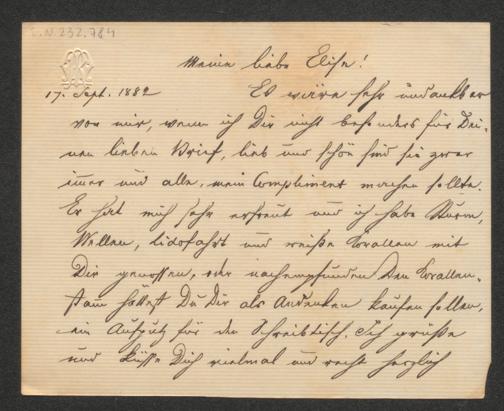 I.N. 232.784
Meine liebe Elise!
17. Sept. 1882 Es wäre sehr undankbar
von mir, wenn ich Dir nicht besonders für Dei-
nen lieben Brief, lieb und schön sind sie zwar
immer und alle, mein Compliment machen sollte.
Er hat mich sehr erfreut und ich habe Sturm,
Wellen, Lidofahrt und weiße Corallen mit
Dir genossen, oder nachempfunden. Den Corallen-
stam hättest Du Dir als Andenken kaufen sollen,
ein Aufputz für den Schreibtisch. Ich grüße
und küsse Dich vielmal und recht herzlich